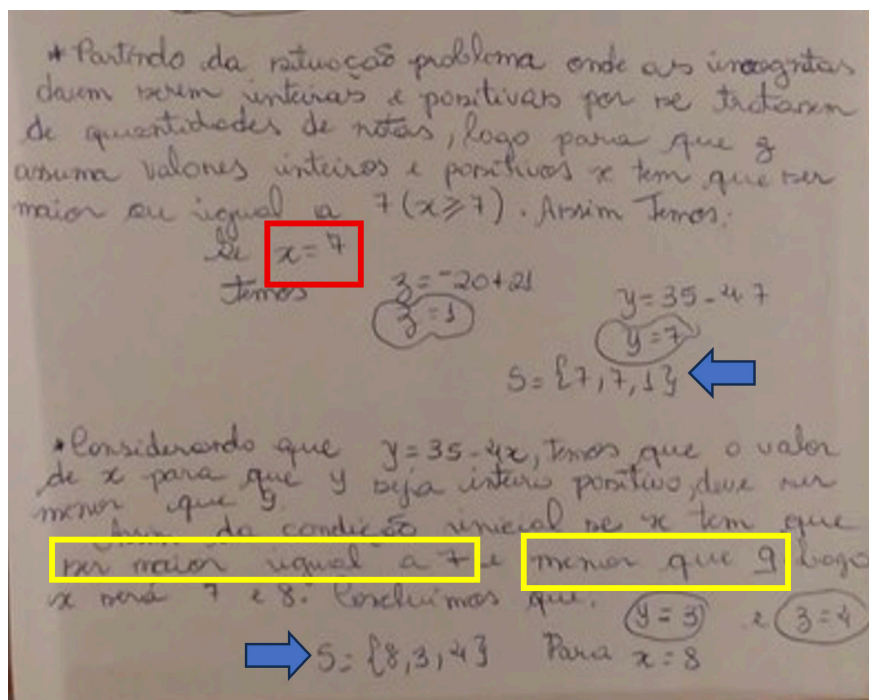 * Partindo da situação problema onde as incognitas
devem serem inteiras e positivas por se tratarem
de quantidades de notas, logo para que z
assuma valores inteiros e positivos x tem que ser
maior ou igual a 7 (x⩾7). Assim Temos:
Se x = 7
temos z = -20+21 y = 35 - 4 7
z = 1 y = 7
S = {7, 7, 1}
* Considerando que y = 35 - 4x, temos que o valor
de x para que y seja inteiro positivo, deve ser
menor que 9.
Assim da condição inicial se x tem que
ser maior igual a 7 e menor que 9 logo
x será 7 e 8. Concluimos que.
y = 3 e z = 4
S = {8, 3, 4} Para x = 8